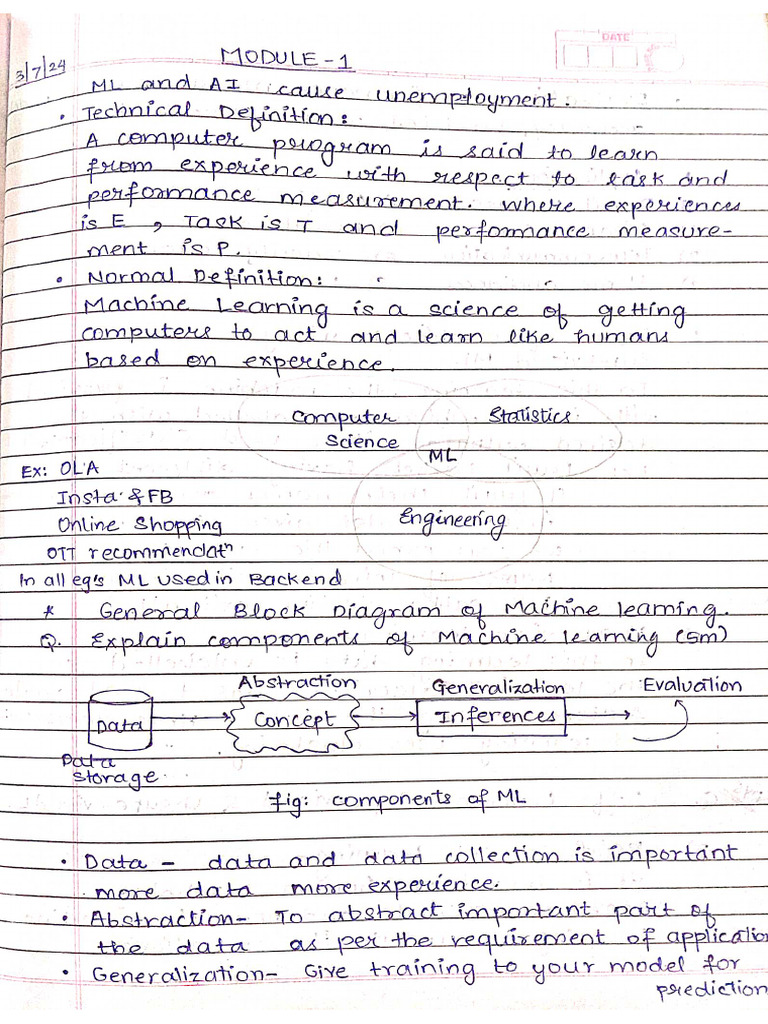 DATE
3/7/24
MODULE - 1
ML and AI cause unemployment.
• Technical Definition:
A computer program is said to learn
from experience with respect to task and
performance measurement. where experiences
is E, Task is T and performance measure-
ment is P.
• Normal Definition:
Machine Learning is a science of getting
computers to act and learn like humans
based on experience.
Computer Science
Statistics
ML
Engineering
Ex: OLA
Insta & FB
Online Shopping
OTT recommendatn
In all eg's ML used in Backend
* General Block Diagram of Machine learning.
Q. Explain components of Machine learning (5m)
Abstraction Generalization Evaluation
Data Concept Inferences
Data
Storage.
fig: components of ML
• Data - data and data collection is important
more data more experience.
• Abstraction- To abstract important part of
the data as per the requirement of application
• Generalization- Give training to your model for
prediction